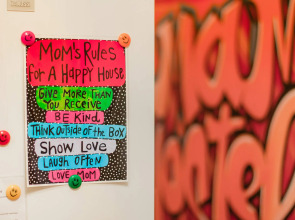 Mom's Rules
for A Happy House
Give More Than
You Receive
Be Kind
Think Outside of the Box
Show Love
Laugh Often
Love Mom